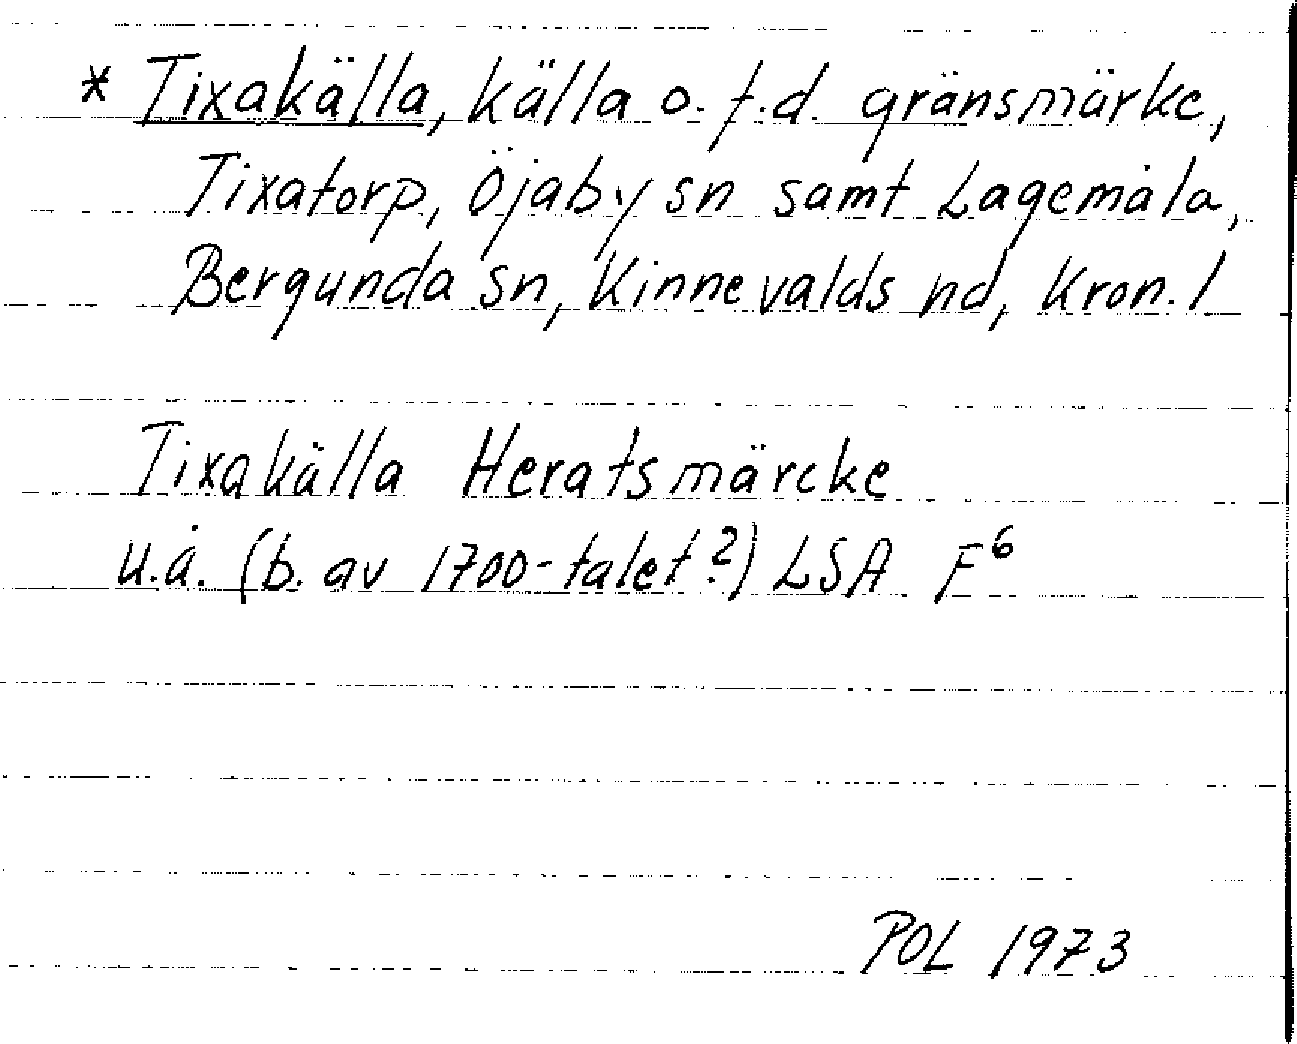 * Tixakälla, källa o. f.d. gränsmärke,
Tixatorp, Öjaby sn samt Lagemåla,
Bergunda sn, Kinnevalds hd, Kron. l
Tixakälla Heratsmärcke
u.å. (b. av 1700-talet?) LSA F6
POL 1973